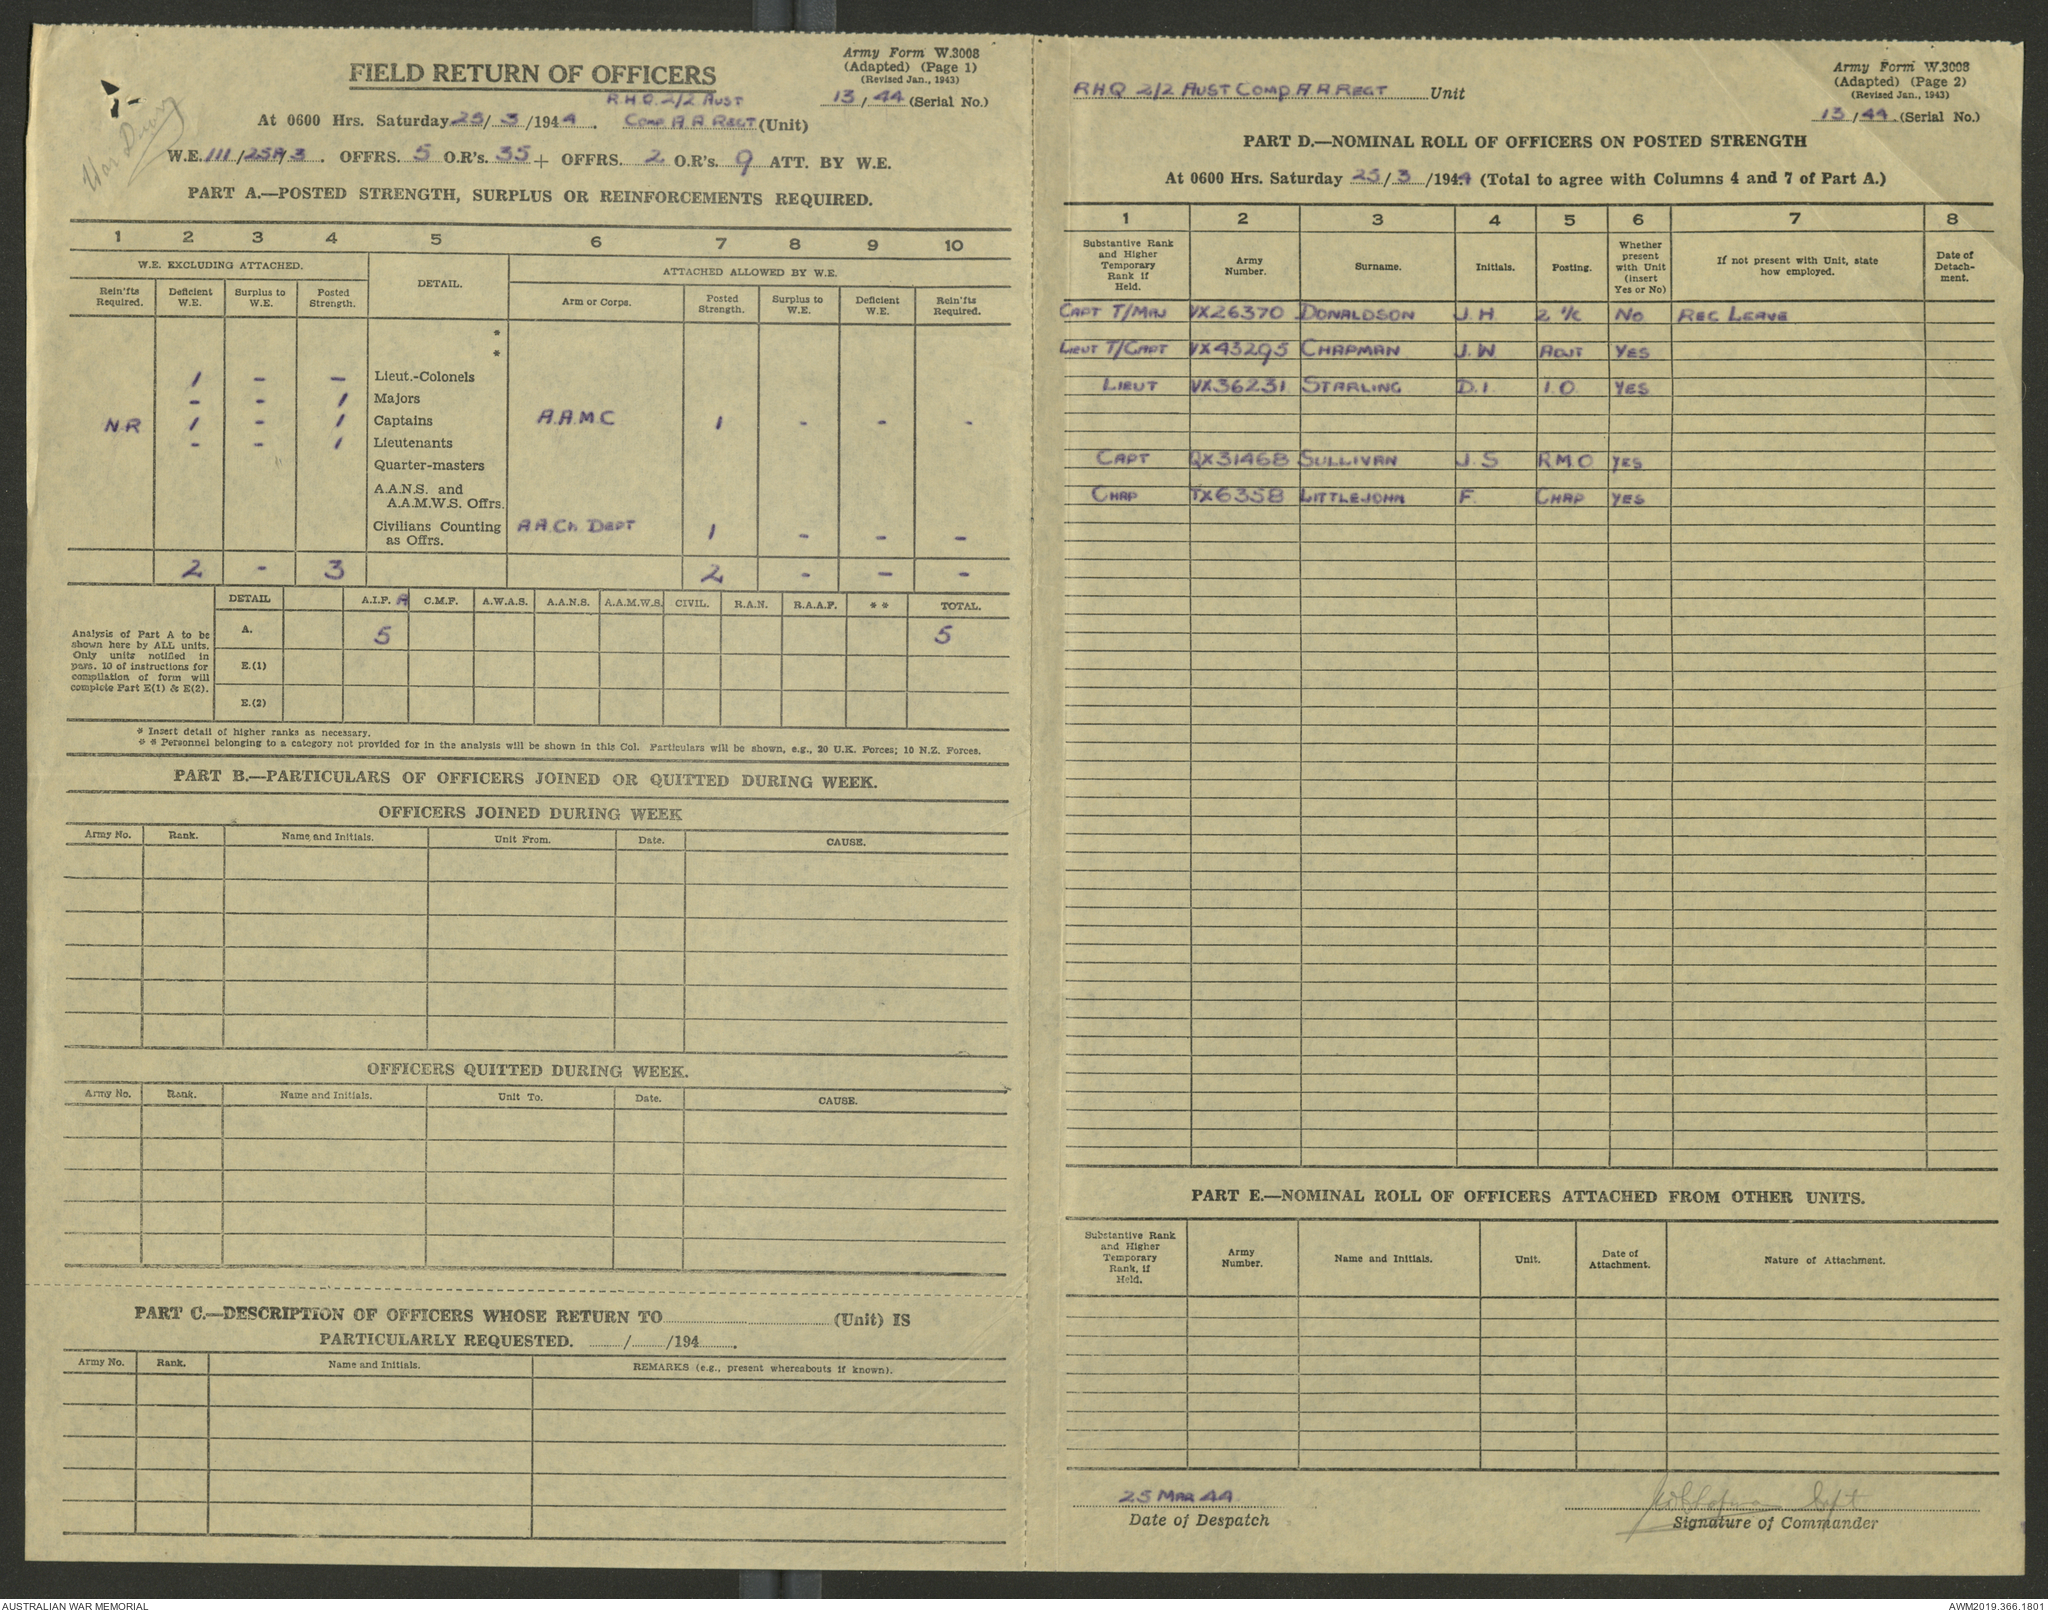 FIELD RETURN OF OFFICERS
Army Form W.3008
(Adapted) (Page 1)
(Revised Jan., 1943)
R.H.Q. 2/2 AUST
13/44 (Serial No.)
At 0600 Hrs. Saturday 25/3/1944. COMP A A REGT (Unit)
War Diary
W.E. III/25A/3. OFFRS. 5 O.R's. 35 + OFFRS. 2 O.R's. 9 ATT. BY W.E.
PART A.—POSTED STRENGTH, SURPLUS OR REINFORCEMENTS REQUIRED.
1 2 3 4 5 6 7 8 9 10
W.E. EXCLUDING ATTACHED. DETAIL. ATTACHED ALLOWED BY W.E.
Rein'fts Required. Deficient W.E. Surplus to W.E. Posted Strength. Arm or Corps. Posted Strength. Surplus to W.E. Deficient W.E. Rein'fts Required.
*
*
1 - - Lieut.-Colonels
- - 1 Majors
N.R 1 - 1 Captains A.A.M.C 1 - - -
- - 1 Lieutenants
Quarter-masters
A.A.N.S. and
A.A.M.W.S. Offrs.
Civilians Counting as Offrs. A.A.Ch. DEPT 1 - - -
2 - 3 2 - - -
DETAIL A.I.F. A C.M.F. A.W.A.S. A.A.N.S. A.A.M.W.S. CIVIL. R.A.N. R.A.A.F. ** TOTAL.
Analysis of Part A to be
shown here by ALL units.
Only units notified in
pars. 10 of instructions for
compilation of form will
complete Part E(1) & E(2).
A. 5 5
E.(1)
E.(2)
* Insert detail of higher ranks as necessary.
* * Personnel belonging to a category not provided for in the analysis will be shown in this Col. Particulars will be shown, e.g., 20 U.K. Forces; 10 N.Z. Forces.
PART B.—PARTICULARS OF OFFICERS JOINED OR QUITTED DURING WEEK.
OFFICERS JOINED DURING WEEK
Army No. Rank. Name and Initials. Unit From. Date. CAUSE.
OFFICERS QUITTED DURING WEEK.
Army No. Rank. Name and Initials. Unit To. Date. CAUSE.
PART C.—DESCRIPTION OF OFFICERS WHOSE RETURN TO (Unit) IS
PARTICULARLY REQUESTED. / /194 .
Army No. Rank. Name and Initials. REMARKS (e.g., present whereabouts if known).
RHQ 2/2 AUST COMP A A REGT Unit
Army Form W.3008
(Adapted) (Page 2)
(Revised Jan., 1943)
13/44 (Serial No.)
PART D.—NOMINAL ROLL OF OFFICERS ON POSTED STRENGTH
At 0600 Hrs. Saturday 25/3/1944 (Total to agree with Columns 4 and 7 of Part A.)
1 2 3 4 5 6 7 8
Substantive Rank and Higher Temporary Rank if Held. Army Number. Surname. Initials. Posting. Whether present with Unit (insert Yes or No) If not present with Unit, state how employed. Date of Detachment.
CAPT T/MAJ VX26370 DONALDSON J.H 2 I/C NO REC LEAVE
LIEUT T/CAPT VX43295 CHAPMAN J.W ADJT YES
LIEUT VX36231 STARLING D.I. I.O. YES
CAPT QX31468 SULLIVAN J.S R.M.O. YES
CHAP TX6358 LITTLEJOHN F. CHAP YES
PART E.—NOMINAL ROLL OF OFFICERS ATTACHED FROM OTHER UNITS.
Substantive Rank and Higher Temporary Rank, if Held. Army Number. Name and Initials. Unit. Date of Attachment. Nature of Attachment.
25 MAR 44
Date of Despatch
Capt
Signature of Commander
AUSTRALIAN WAR MEMORIAL
AWM2019.366.1801